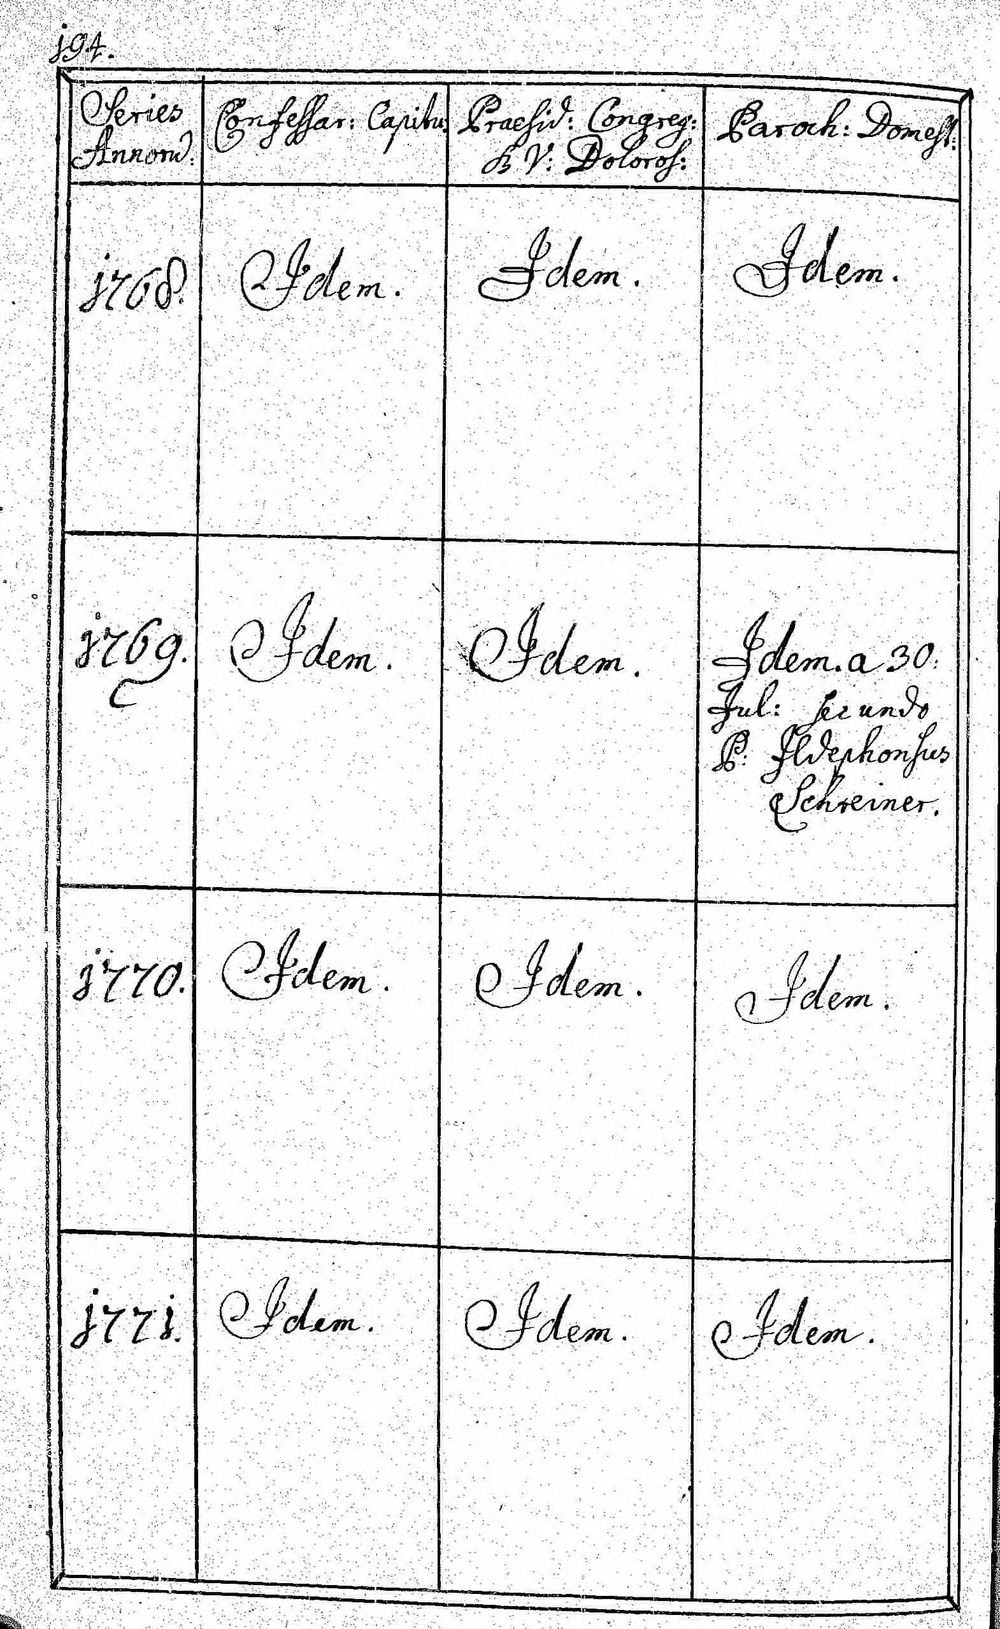 194.
Series Confessar: Capitu: Praesid: Congreg: Paroch: Domest:
Annorū: B V: Doloros:
1768. Idem. Idem. Idem.
1769. Idem. Idem. Idem. a 30.
Jul: secundo
P: Ildephonsus
Schreiner.
1770. Idem. Idem. Idem.
1771. Idem. Idem. Idem.